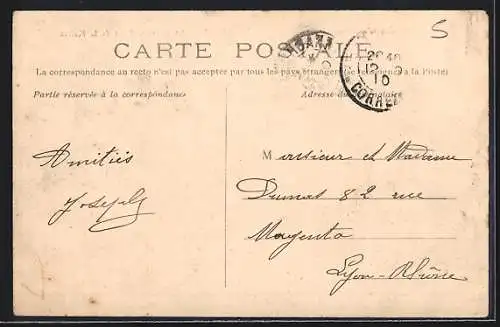 5
CARTE POSTALE
La correspondance au recto n'est pas acceptée par tous les pays étrangers (Se renseigner à la Poste)
Partie réservée à la correspondance
Adresse du
12
10
CORRÈ
Amitiés
Joseph
Monsieur et Madame
Dumas 82 rue
Magenta
Lyon-Rhône